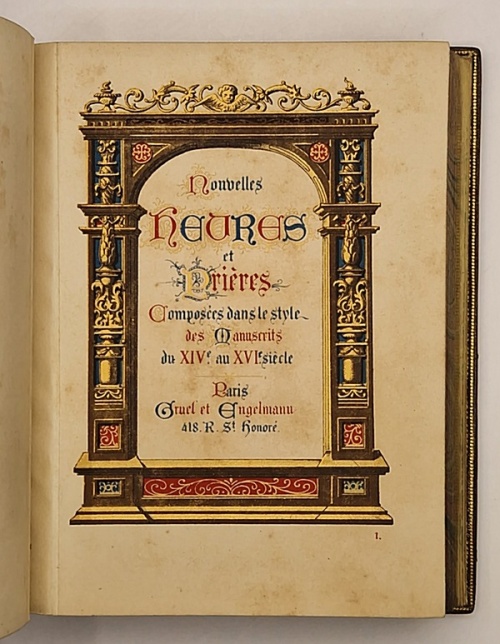 Nouvelles
HEURES
et
Prières
Composées dans le style
des Manuscrits
du XIVe. au XVIe. siècle
Paris
Gruel et Engelmann
418. R. St. Honoré.
1.